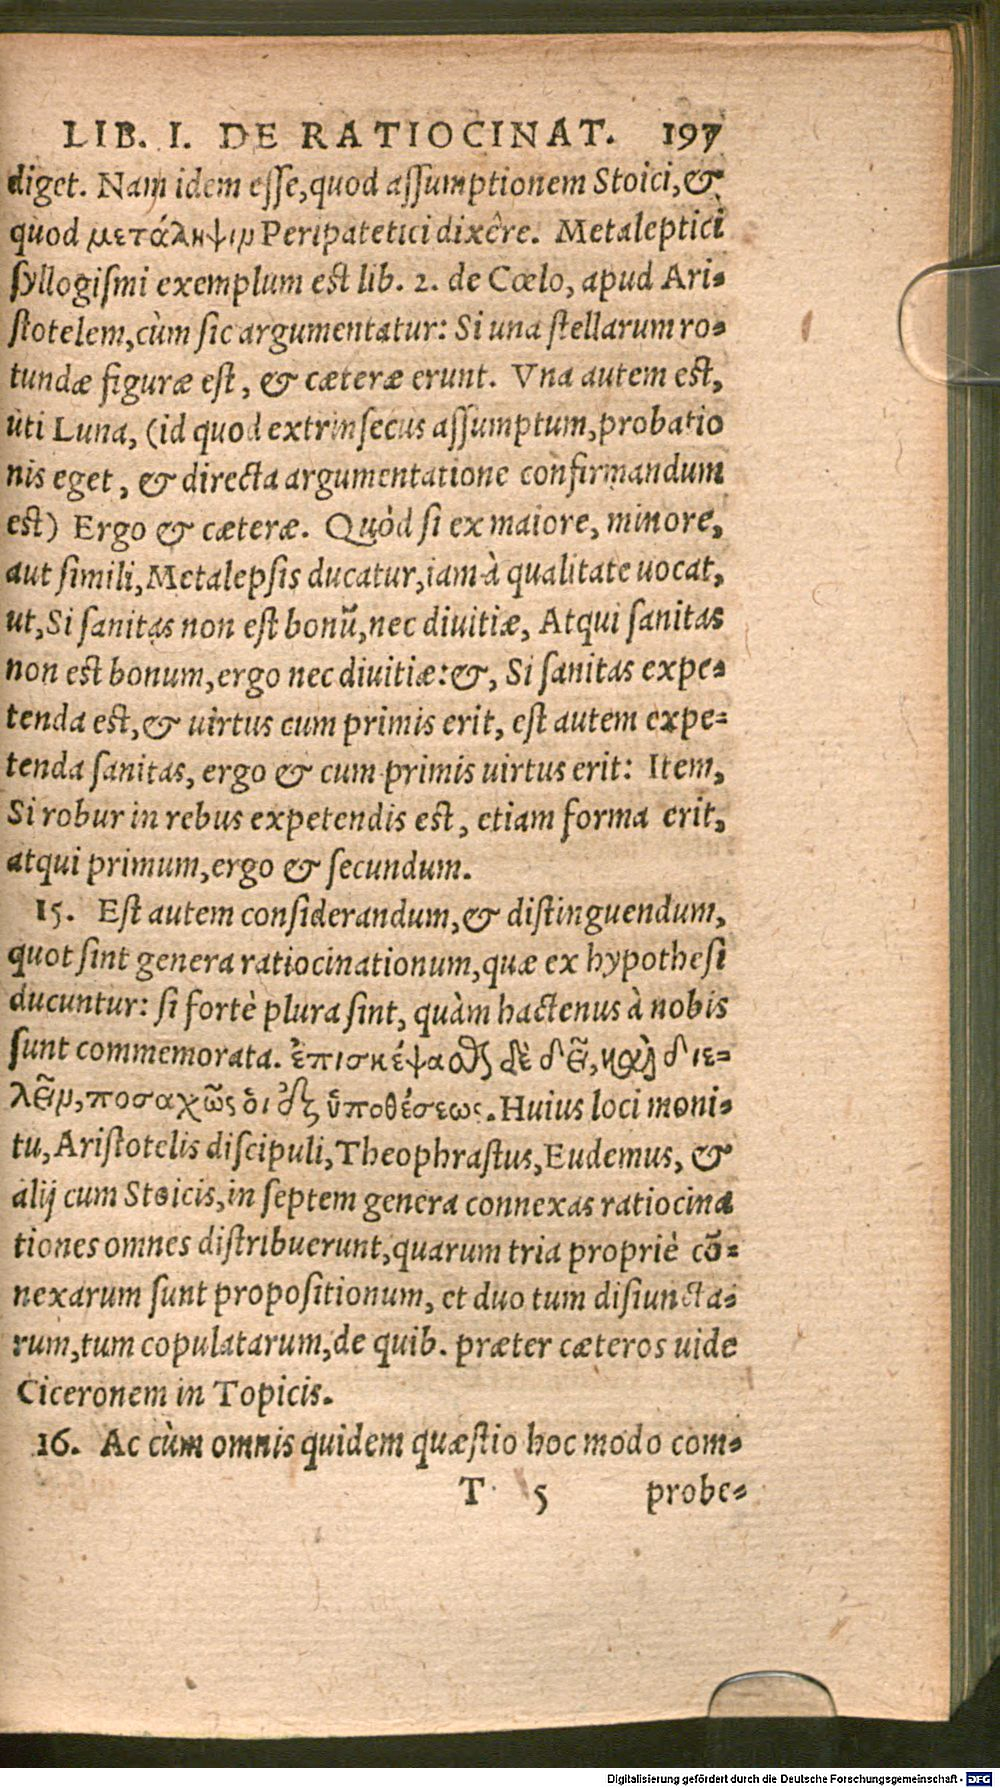 LIB. I. DE RATIOCINAT. 197
diget. Nam idem esse, quod assumptionem Stoici, &
quod μετάληψιν Peripatetici dixêre. Metaleptici
syllogismi exemplum est lib. 2. de Cœlo, apud Ari-
stotelem, cùm sic argumentatur: Si una stellarum ro-
tundæ figuræ est, & cæteræ erunt. Vna autem est,
uti Luna, (id quod extrinsecus assumptum, probatio
nis eget, & directa argumentatione confirmandum
est) Ergo & cæteræ. Quòd si ex maiore, minore,
aut simili, Metalepsis ducatur, iam à qualitate uocat,
ut, Si sanitas non est bonũ, nec diuitiæ, Atqui sanitas
non est bonum, ergo nec diuitiæ: &, Si sanitas expe-
tenda est, & uirtus cum primis erit, est autem expe-
tenda sanitas, ergo & cum primis uirtus erit: Item,
Si robur in rebus expetendis est, etiam forma erit,
atqui primum, ergo & secundum.
15. Est autem considerandum, & distinguendum,
quot sint genera ratiocinationum, quæ ex hypothesi
ducuntur: si fortè plura sint, quàm hactenus à nobis
sunt commemorata. ἐπισκέψασθαι δὲ δεῖ, καὶ διε-
λεῖν, ποσαχῶς οἱ ἐξ ὑποθέσεως. Huius loci moni-
tu, Aristotelis discipuli, Theophrastus, Eudemus, &
alij cum Stoicis, in septem genera connexas ratiocina
tiones omnes distribuerunt, quarum tria propriè cõ-
nexarum sunt propositionum, et duo tum disiuncta-
rum, tum copulatarum, de quib. præter cæteros uide
Ciceronem in Topicis.
16. Ac cùm omnis quidem quæstio hoc modo com-
T 5 probe-
Digitalisierung gefördert durch die Deutsche Forschungsgemeinschaft - DFG